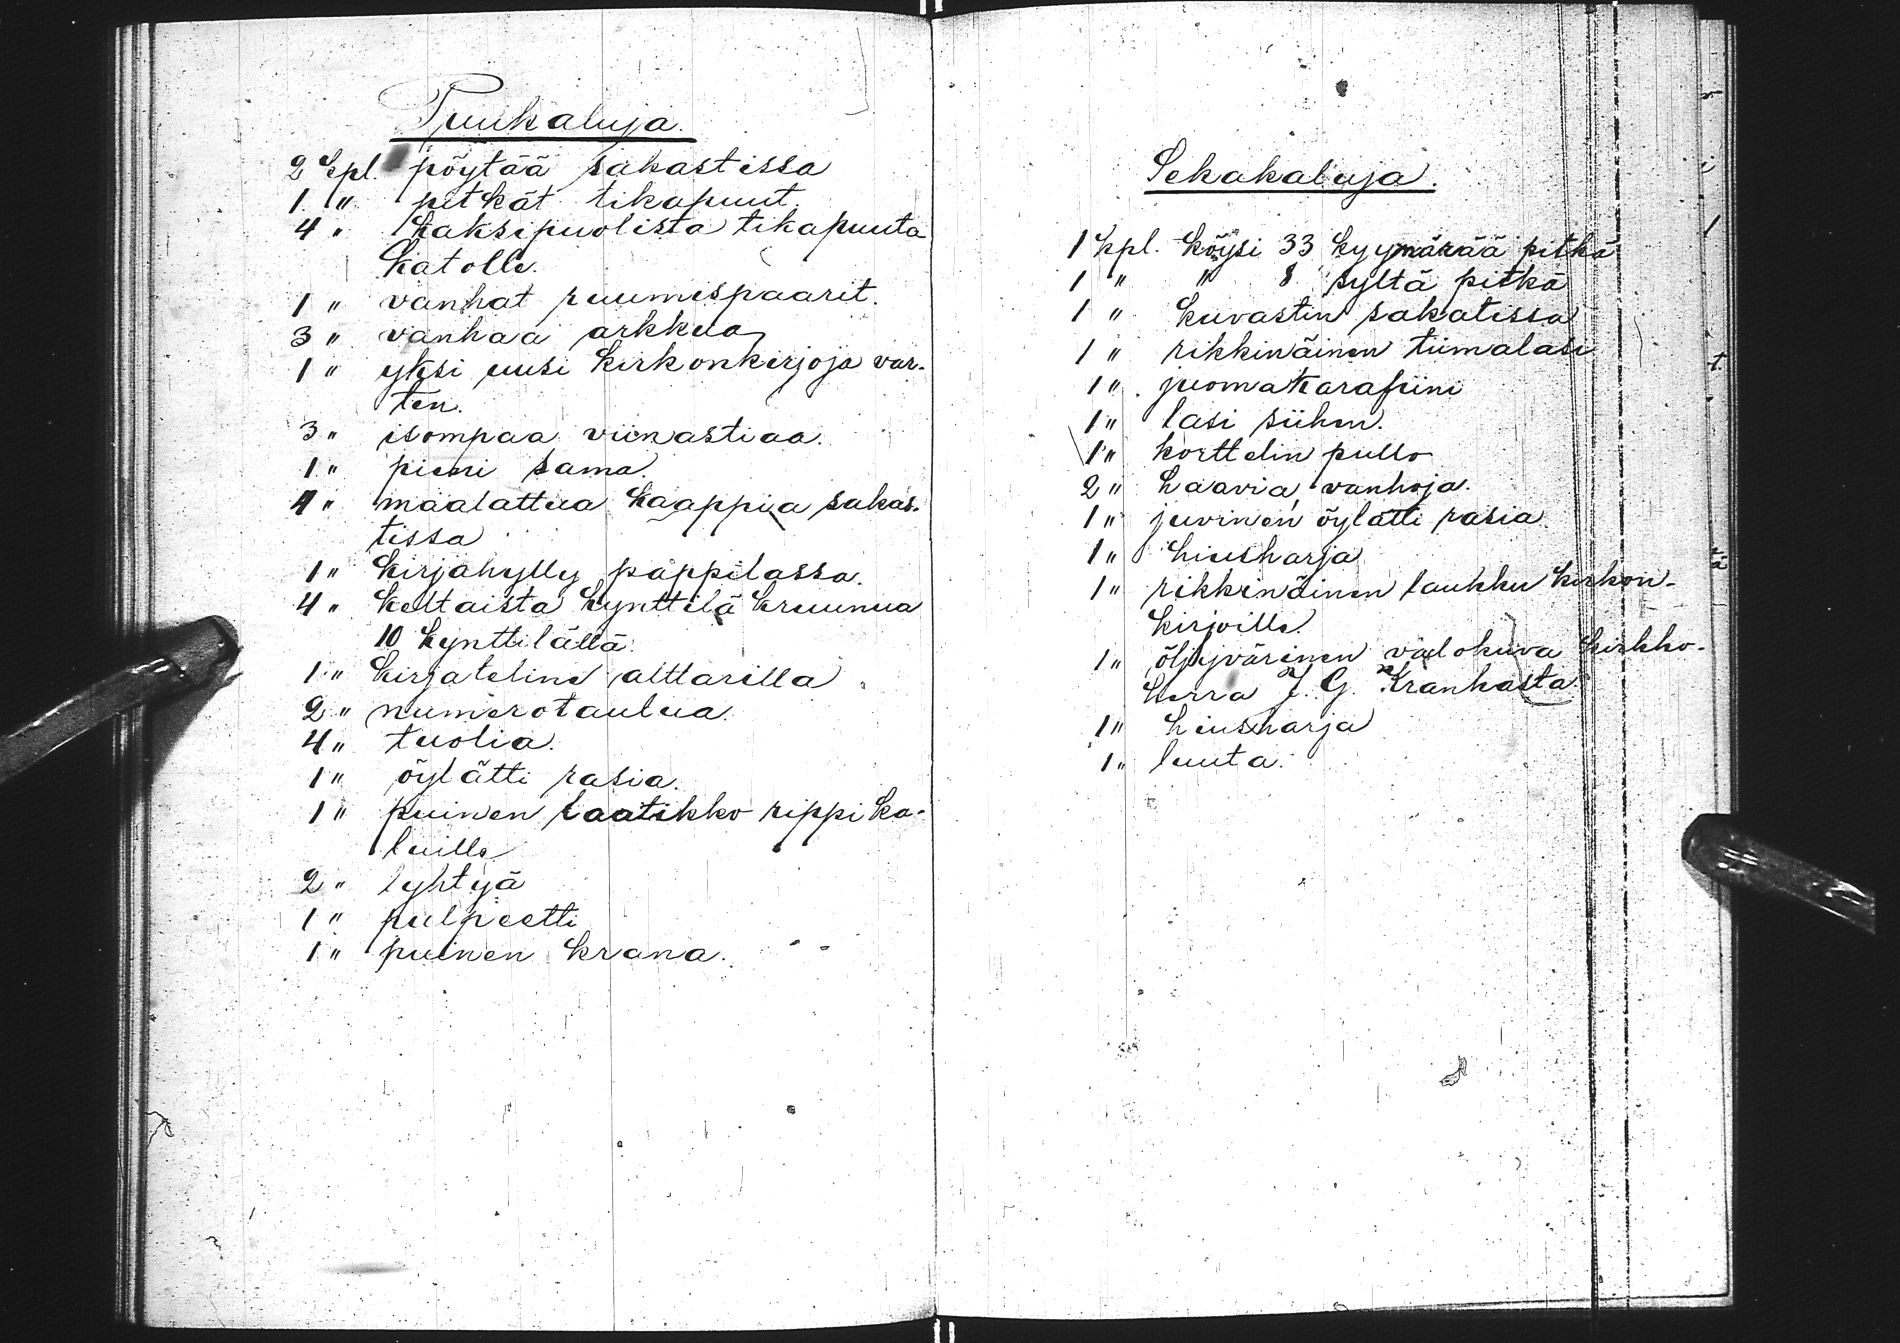 Puukaluja.
2 kpl. pöytää sakastissa
1 " pitkät tikapuut.
4 " kaksipuolista tikapuuta
katolle.
1 " vanhat ruumispaarit.
3 " vanhaa arkkua
1 " yksi uusi kirkonkirjoja var-
ten.
3 " isompaa viinastiaa.
1 " pieni sama
4 " maalattua kaappia sakas-
tissa
1 " kirjahylly pappilassa.
4 " keltaista kynttilä kruunua
10 kynttilällä.
1 " kirjateline alttarilla
2 " numerotaulua.
4 " tuolia.
1 " öylätti rasia.
1 " puinen laatikko rippi ka-
luille
2 " lyhtyä
1 " pulpeetti
1 " puinen krana.
Sekakaluja.
1 kpl. köysi 33 kyymärää pitkä
1 " " 8 syltä pitkä
1 " kuvastin sakatissa
1 " rikkinäinen tiimalasi
1 " juomakarafiini
1 " lasi siihen.
1 " korttelin pullo
2 " haavia, vanhoja.
1 " juurinen öylätti rasia.
1 " hiusharja
1 " rikkinäinen laukku kirkon-
kirjoille.
1 " öljyvärinen valokuva kirkko-
herra J. G. Krankasta
1 " hiusharja
1 " luuta.